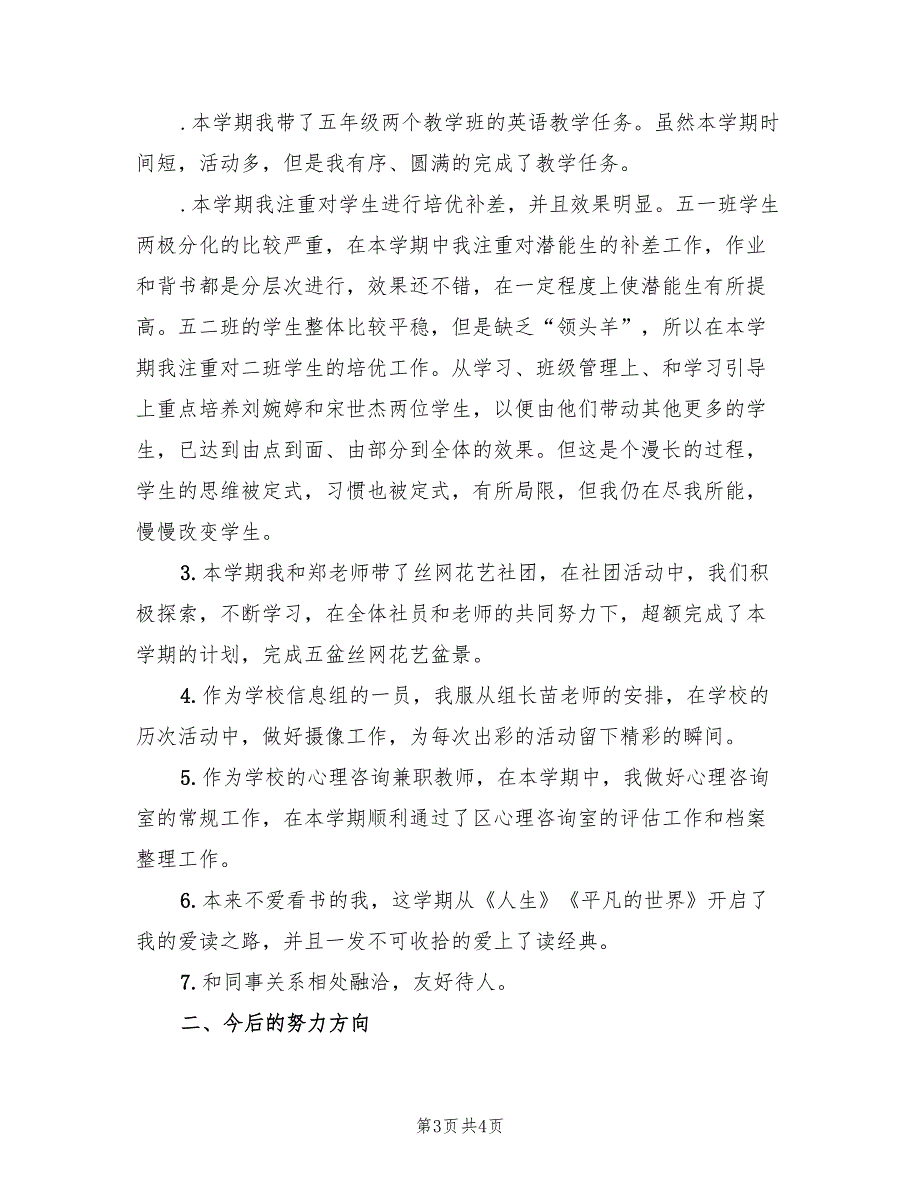 . 本学期我带了五年级两个教学班的英语教学任务。虽然本学期时
间短，活动多，但是我有序、圆满的完成了教学任务。
. 本学期我注重对学生进行培优补差，并且效果明显。五一班学生
两极分化的比较严重，在本学期中我注重对潜能生的补差工作，作业
和背书都是分层次进行，效果还不错，在一定程度上使潜能生有所提
高。五二班的学生整体比较平稳，但是缺乏“领头羊”，所以在本学
期我注重对二班学生的培优工作。从学习、班级管理上、和学习引导
上重点培养刘婉婷和宋世杰两位学生，以便由他们带动其他更多的学
生，已达到由点到面、由部分到全体的效果。但这是个漫长的过程，
学生的思维被定式，习惯也被定式，有所局限，但我仍在尽我所能，
慢慢改变学生。
3. 本学期我和郑老师带了丝网花艺社团，在社团活动中，我们积
极探索，不断学习，在全体社员和老师的共同努力下，超额完成了本
学期的计划，完成五盆丝网花艺盆景。
4. 作为学校信息组的一员，我服从组长苗老师的安排，在学校的
历次活动中，做好摄像工作，为每次出彩的活动留下精彩的瞬间。
5. 作为学校的心理咨询兼职教师，在本学期中，我做好心理咨询
室的常规工作，在本学期顺利通过了区心理咨询室的评估工作和档案
整理工作。
6. 本来不爱看书的我，这学期从《人生》《平凡的世界》开启了
我的爱读之路，并且一发不可收拾的爱上了读经典。
7. 和同事关系相处融洽，友好待人。
二、今后的努力方向
第3页共4页